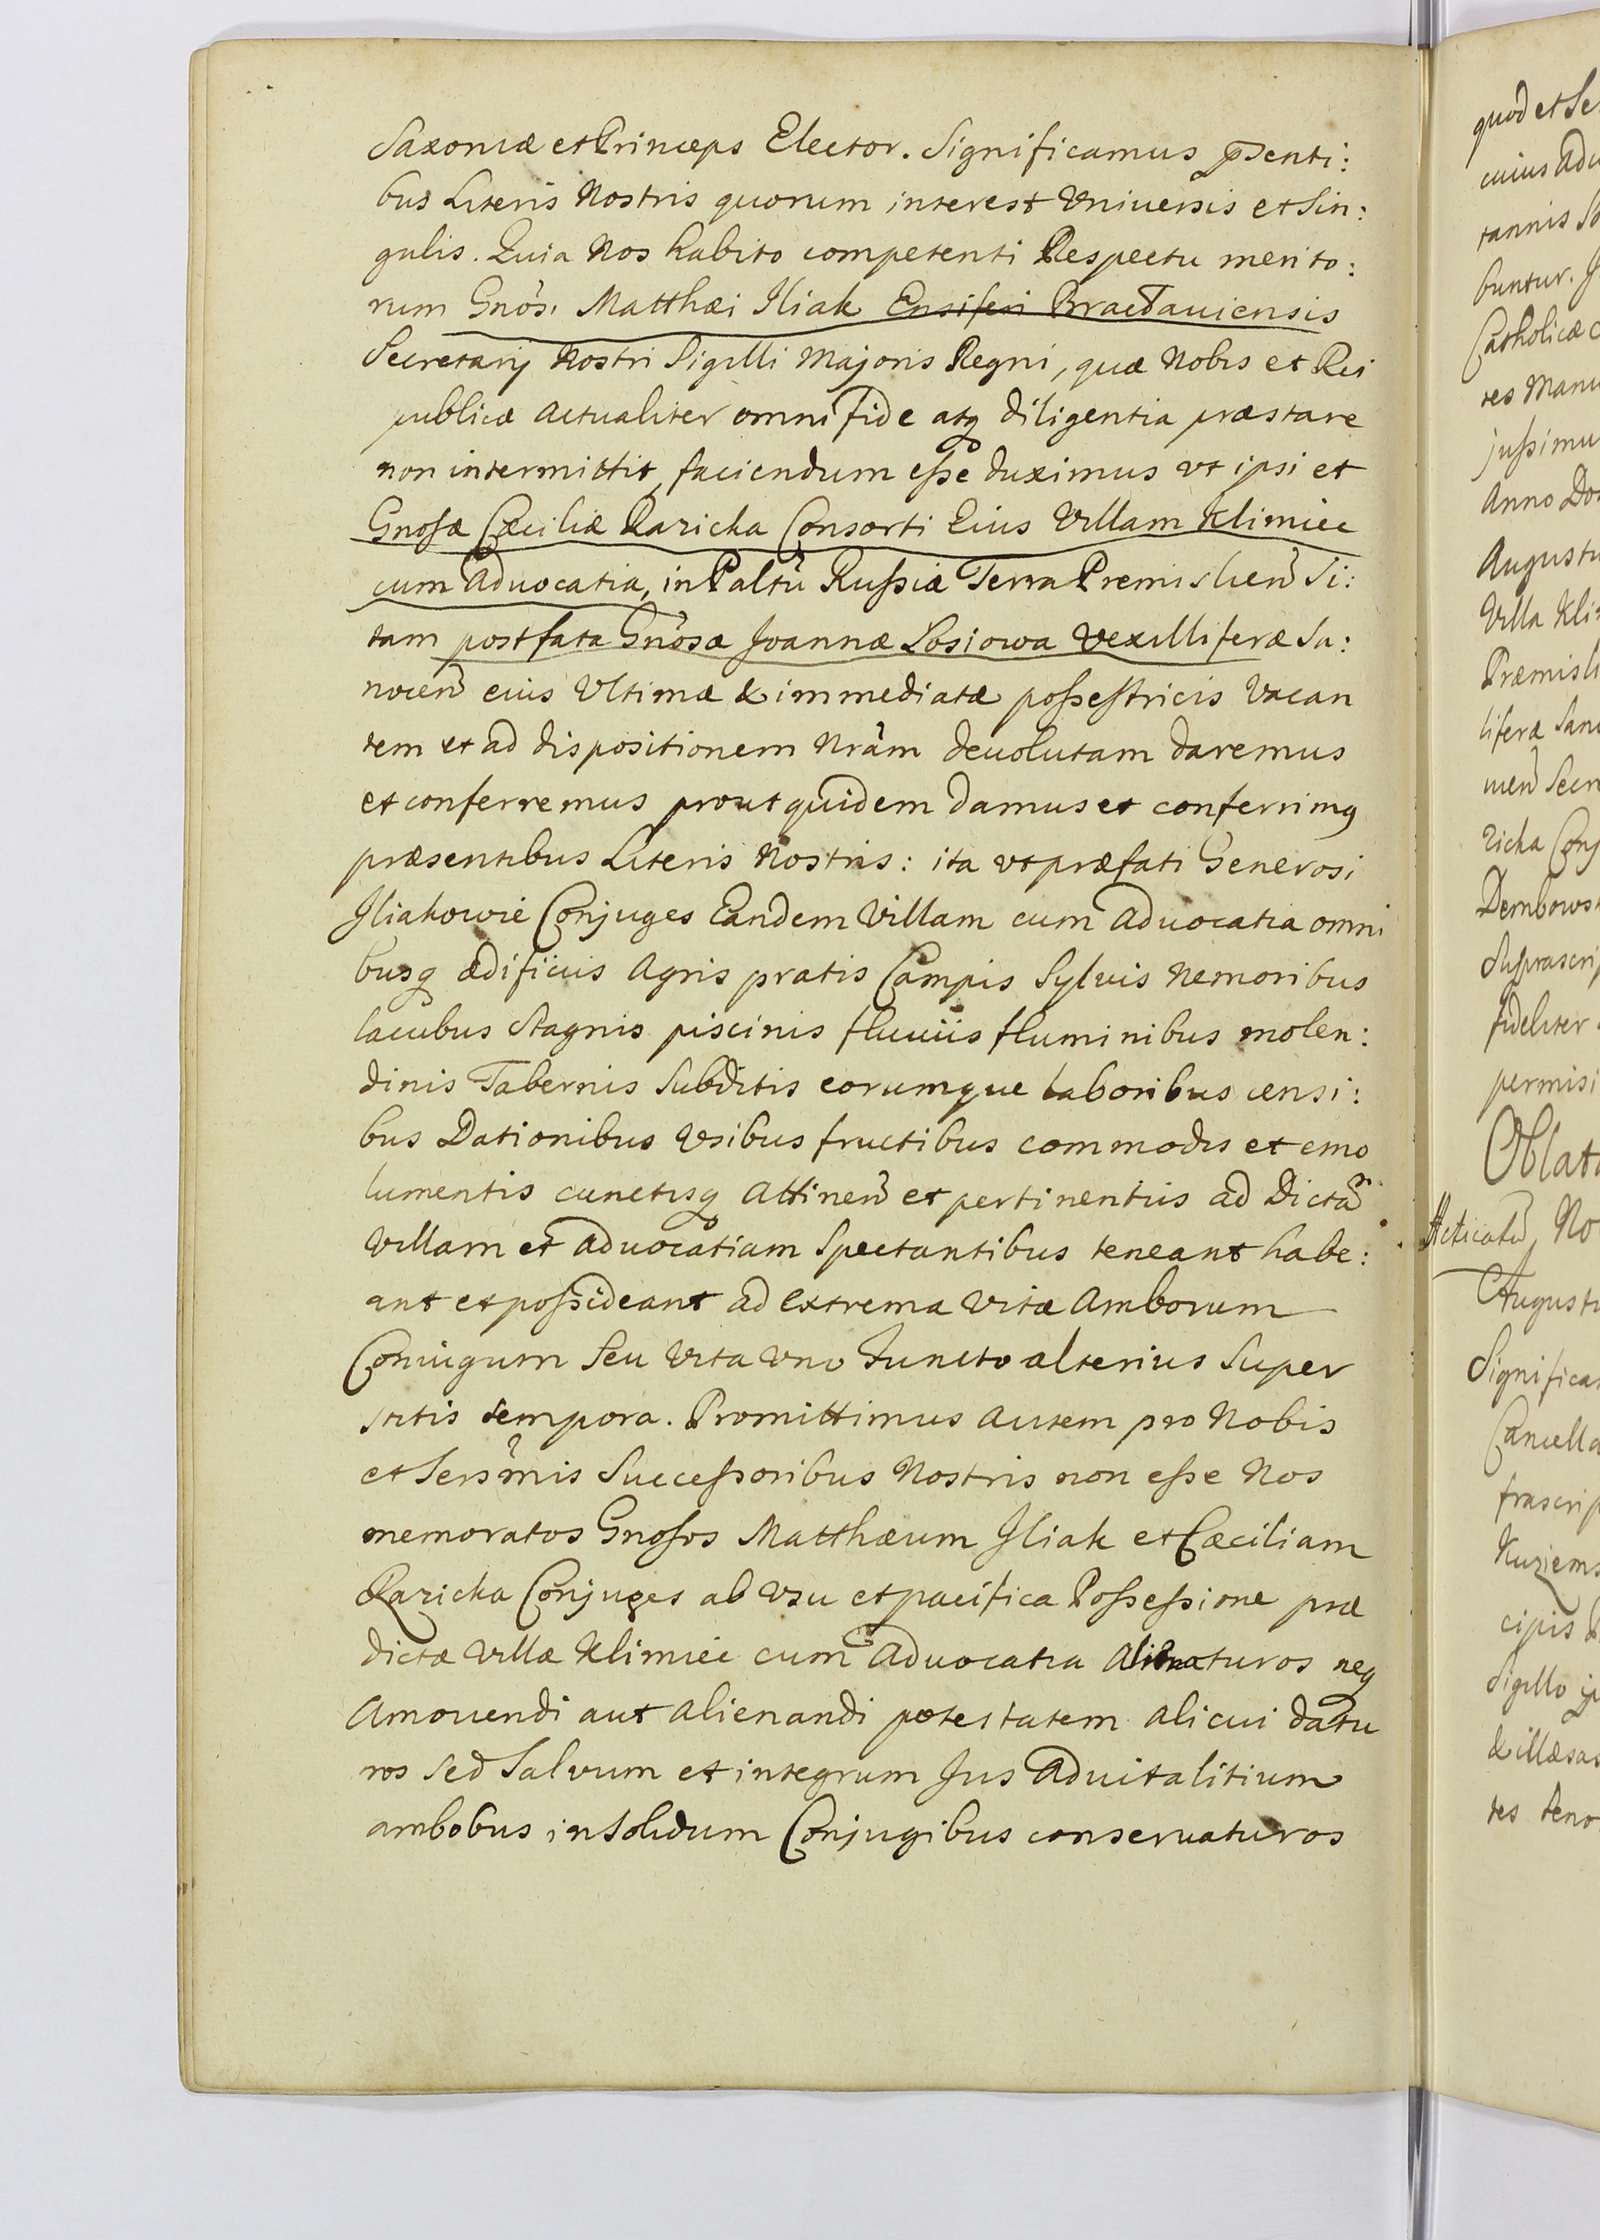 Saxoniæ et Princeps Elector. Significamus p̃senti:
bus Literis Nostris quorum interest Vniuersis et Sin:
gulis. Quia Nos habito competenti Respectu merito:
rum Gnõsi Matthæi Jliak Ensiferi Bracłauiensis
Secretarij Nostri Sigilli Majoris Regni, quæ Nobis et Rei
publicæ actualiter omni fide atq diligentia præstare
non intermittit, faciendum eſse duximus vt ipsi et
Gnosæ Cæciliæ Razicka Consorti Eius Villam Klimiec
cum Aduocatia, in Paltũ Ruſsiæ Terra Premislien̄ Si:
tam post fata Gnõsæ Joannæ Łosiowa Vexilliferæ Sa:
nocen̄ eius Vltimæ & immediatæ poſseſtricis Vacan
tem et ad dispositionem Nrãm deuolutam daremus
et conferremus prout quidem damus et conferimq
præsentibus Literis Nostris: ita vt præfati Generosi
Jliakowie Conjuges Eandem Villam cum aduocatia omni
busq ædificiis Agris pratis Campis Syluis Nemoribus
lacubus Stagnis piscinis fluuiis fluminibus molen:
dinis Tabernis Subditis eorumque laboribus censi:
bus Dationibus Vsibus fructibus commodis et emo
lumentis cunctisq Attinen̄ et pertinentiis ad Dictã
Villam et aduocatiam Spectantibus teneant habe:
ant et poſsideant ad extrema Vitæ Amborum
Coniugum Seu Vita vno functo alterius Super
stitis tempora. Promittimus autem pro Nobis
et Serẽmis Succeſsoribus Nostris non eſse Nos
memoratos Gnosos Matthæum Jliak et Cæciliam
Razicka Conjuges ab Vsu et pacifica Poſseſsione præ
dictæ Villæ Klimiec cum Aduocatia alienaturos neq
Amouendi aut alienandi potestatem alicui datu
ros Sed Salvum et integrum Jus Aduitalitium
ambobus in Solidum Conjugibus conseruaturos
quod et Se
cuius Adu
tannis So
buntur. J
Catholicæ c
res Manu
juſsimu
Anno Do
Augustu
Villa Kli
Præmisli
liferæ San
uien̄ Secr
zicka Conj
Dembows
Suprascri
fideliter
permisi
Oblata
Acticatũ, No
Augustu
Significa
Cancella
frascrip
Kuziems
cipis
Sigillo
& illæsas
tes teno